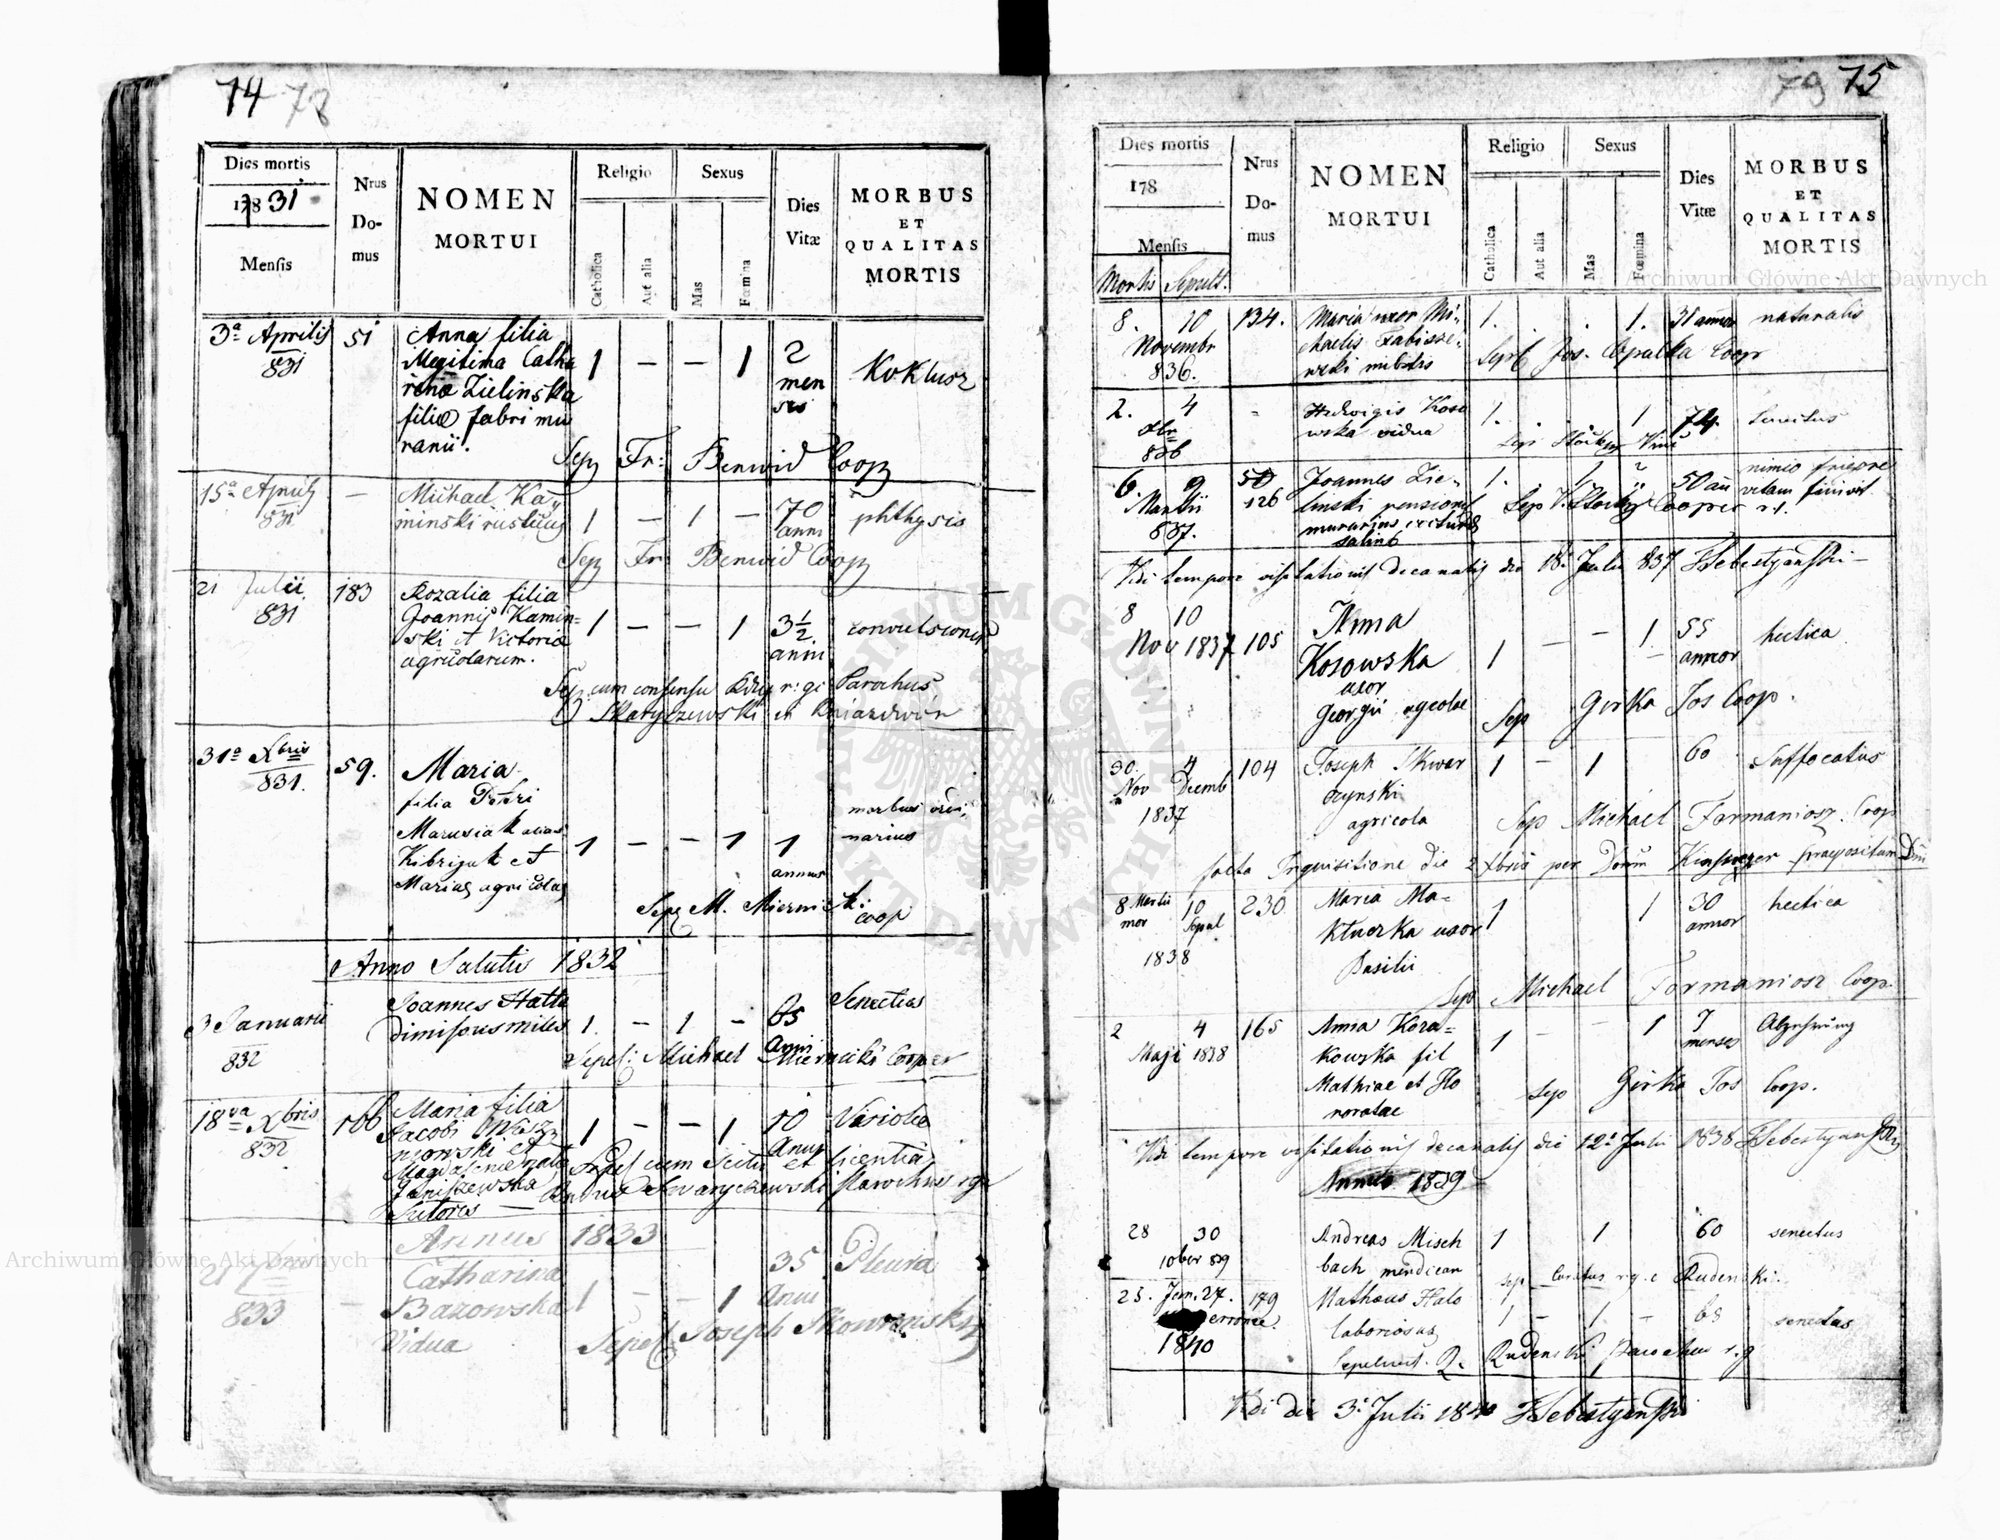 74 78
Dies mortis
178 31
Mensis
Nrus
Do-
mus
NOMEN
MORTUI
Religio
Catholica
Aut alia
Sexus
Mas
Fœmina
Dies
Vitæ
MORBUS
ET
QUALITAS
MORTIS
3a Aprilis
831
51
Anna filia
Illegitima Catha
rena Zielinska
filia fabri mu
ranii.
1 — — 1
2
men
ses
Koklusz
Sep Fr: Benwid Coop
15a Aprilis
831
—
Michael Kay
minski rusticus
1 — 1 —
70
anni
phthysis
Sep Fr Benwid Coop
21 Julii
831
183
Rozalia filia
Joannis Kamin-
ski et Victoria
agricolarum.
1 — — 1
3 1/2
anni
convulsiones
Sep cum consensu r: gr: Parochus
Skaryszewski et Kniazdwór
31a Xbris
831.
59.
Maria
filia Petri
Marusiak alias
Kibrijuk et
Marias agricolas
1 — — 1
1
annus
morbus ordi-
narius
Sepe M. Miernicki
coop
Anno Salutis 1832
3 Januarii
832
Joannes Hatta
dimissus miles
1. — 1 —
65
Anni
Senectus
Sepel: Michael Miernicki Cooper
18va Xbris
832
166
Maria filia
Jacobi
et
Magdalenae nata
Janiszewska
Sutores
1 — — 1
10
Anni
Variola
Sepel cum Scitu et licentia
Skaryszewski Parochus rgr
Annus 1833
21
833
—
Catharina
Bazowska
Vidua
1 — — 1
35
Anni
Pleura
Sepel Joseph Skowronski
79 75
Dies mortis
178
Mensis
Mortis Sepult.
Nrus
Do-
mus
NOMEN
MORTUI
Religio
Catholica
Aut alia
Sexus
Mas
Fœmina
Dies
Vitæ
MORBUS
ET
QUALITAS
MORTIS
8. 10
Novembr
836.
134.
Maria uxor Mi-
chaelis Fabisze-
wski
1. . . 1.
31 annor
naturalis
Sepel Jos. Copulka Coop
2. 4
Xbr
836
Hedvigis Koso
wska vidua
1. . . 1
74.
Senectus
6. 9
Martii
837.
50
126
Joannes Zie-
linski
murarius
1. . 1
50 an
nimio frigore
vitam finivit
Vidi tempore visitationis decanalis die 18. Julii 837 FSebestyanski
8 10
Nov 1837
105
Anna
Kosowska
uxor
Georgii agcolae
1 — — 1
55
annor
hectica
Sep Girka Jos Coop.
30. 4
Nov Decemb
1837
104
Joseph Skwar
czynski
agricola
1 — 1
60
Suffocatus
Sep Michael Formaniosz Coop
facta Inquisitione die 2 Xbris per Praepositum
8 Martii 10
mor Sepul
1838
230
Maria Ma-
ktuczka uxor
Basilii
1 1
30
annor
hectica
Sep Michael Formaniosz Coop.
2 4
Maji 1838
165
Anna Kora-
kowska fil
Mathiae et Ho
noratae
1 — — 1
7
menses
Abzehrung
Sep Girka Jos Coop.
Vidi tempore visitationis decanalis die 12. Julii 1838 FSebestyanski
Annus 1839
28 30
10ber 839
Andreas Misch
bach mendicans
1 1
60
senectus
sep Curatus r.g.c Rudenski.
25. Jan. 27.
erronee.
1840
179
Mathaus Halo
laboriosus
1 — 1 —
68
senectus
Sepelivit. Rudenski Parochus r.g
Vidi die 3. Julii 1840 FSebestyanski
Archiwum Główne Akt Dawnych
Archiwum Główne Akt Dawnych
ARCHIWUM GŁÓWNE AKT DAWNYCH